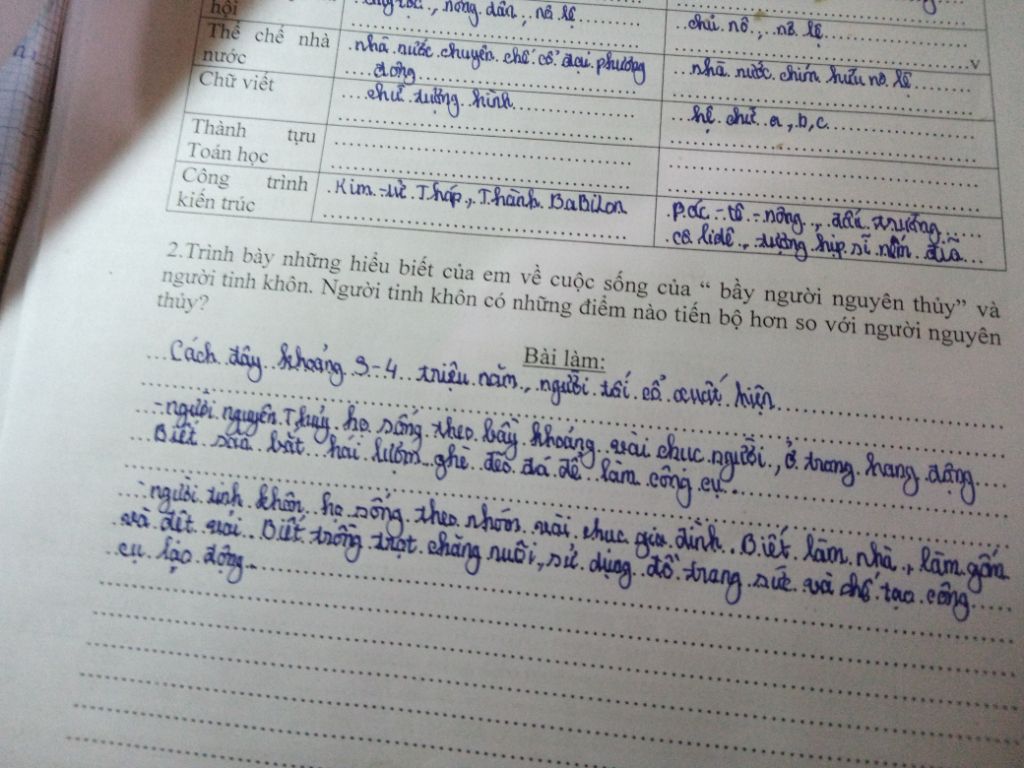 hội
nông dân, nô lệ
chủ nô, nô lệ
Thể chế nhà
nước
nhà nước chuyên chế cổ đại phương
đông
nhà nước chiếm hữu nô lệ
v
Chữ viết
chữ tượng hình
hệ chữ a, b, c
Thành tựu
Toán học
Công trình
kiến trúc
Kim-tử Tháp, Thành BaBiLon
Pác-tê-nông, đấu trường
cô lidê, tượng hiệp sĩ ném đĩa
2.Trình bày những hiểu biết của em về cuộc sống của “ bầy người nguyên thủy” và
người tinh khôn. Người tinh khôn có những điểm nào tiến bộ hơn so với người nguyên
thủy?
Bài làm:
Cách đây khoảng 3-4 triệu năm, người tối cổ xuất hiện
-người nguyên Thuỷ họ sống theo bầy khoảng vài chục người, ở trong hang động
Biết săn bắt hái lượm ghè đẽo đá để làm công cụ.
-người tinh khôn họ sống theo nhóm vài chục gia đình. Biết làm nhà, làm gốm
và dệt vải. Biết trồng trọt chăng nuôi, sử dụng đồ trang sức và chế tạo công
cụ lao động